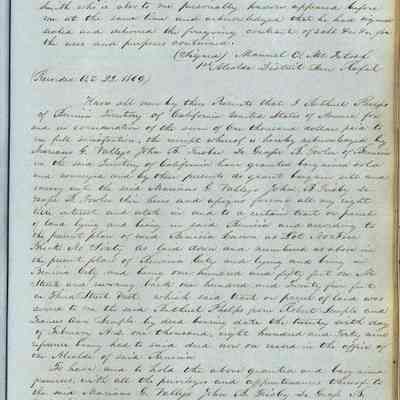 Smith who is also to me personally known appeared before
me at the same time and acknowledged that he had signed
sealed and delivered the foregoing contract of sale &c for
the uses and purposes contained.
(Signed) Manuel C. Mc Intosh
1st Alcalde District San Rafael
Recorded Oct 22. 1849
Know all men by these Presents that I Bethuel Phelps
of Benicia Territory of California United States of America for
and in consideration of the sum of One thousand dollars paid to
me full satisfaction, the receipt whereof is hereby acknowledged by
Mariano G. Vallejo John B. Frisbie De Grasse B. Fowler of Benicia
in the said Territory of California have granted bargained sold
and conveyed and by these presents do grant bargain sell and
convey unto the said Mariano G. Vallejo John B. Frisbie De
Grasse B. Fowler their heirs and assigns forever all my right
title interest and estate in and to a certain tract or parcel
of land lying and being in said Benicia and according to
the present plan of said Benicia known as Lot No
Block No Sixty as laid down and numbered as above in
the present plat of Benicia City and lying and being in
Benicia City and being one hundred and fifty feet on
Street and running back one hundred and twenty five feet
on Third Street West which said tract or parcel of land was
deed to me the said Bethuel Phelps from Robert Semple and
Frances Ann Semple by deed bearing date the twenty sixth day
of February A.D. one thousand eight hundred and forty nine
reference being had to said deed now on record in the office of
the Alcalde of said Benicia
To have and to hold the above granted and bargained
premises, with all the privileges and appurtenances thereof to
the said Mariano G. Vallejo John B. Frisby De Grasse B.